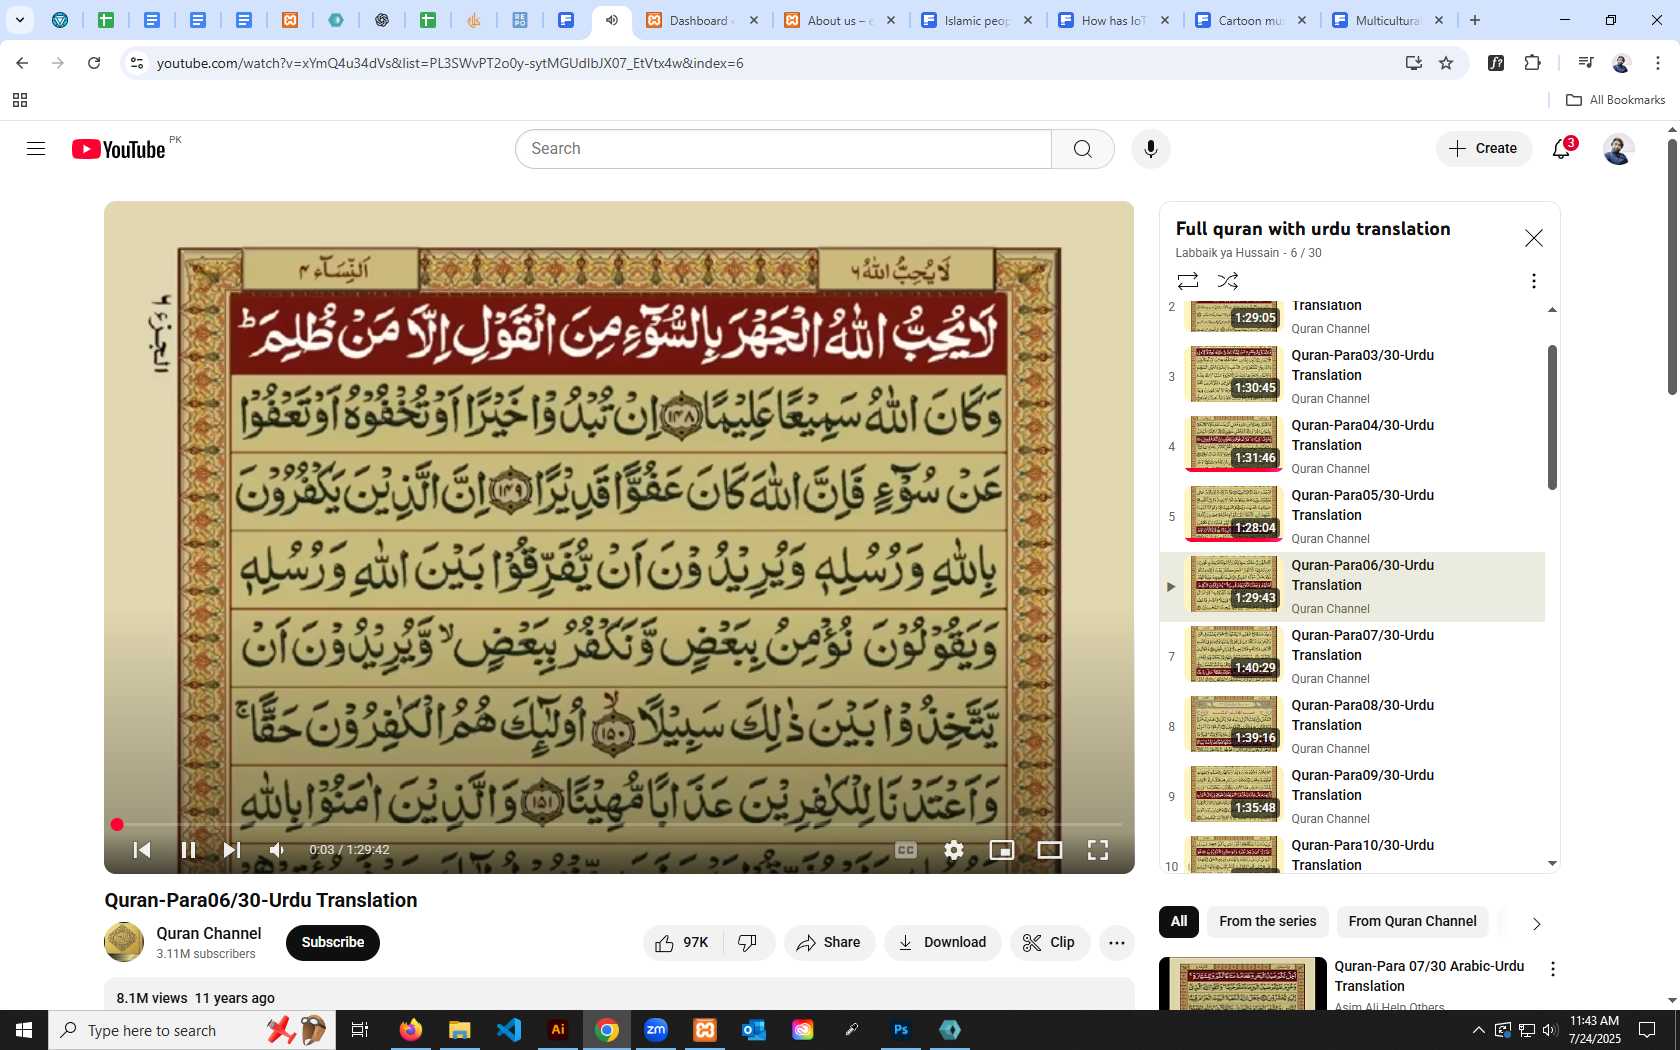 Dashboard
About us – e
Islamic peop
How has IoT
Cartoon mu
Multicultural
youtube.com/watch?v=xYmQ4u34dVs&list=PL3SWvPT2o0y-sytMGUdIbJX07_EtVtx4w&index=6
All Bookmarks
YouTube PK
Search
Create
3
النِّسَآء ۴
لَا یُحِبُّ اللّٰهُ ۶
لَا یُحِبُّ اللّٰهُ الْجَهْرَ بِالسُّوْٓءِ مِنَ الْقَوْلِ اِلَّا مَنْ ظُلِمَ ؕ
وَكَانَ اللّٰهُ سَمِیْعًا عَلِیْمًا ﴿۱۴۸﴾ اِنْ تُبْدُوْا خَیْرًا اَوْ تُخْفُوْهُ اَوْ تَعْفُوْا
عَنْ سُوْٓءٍ فَاِنَّ اللّٰهَ كَانَ عَفُوًّا قَدِیْرًا ﴿۱۴۹﴾ اِنَّ الَّذِیْنَ یَكْفُرُوْنَ
بِاللّٰهِ وَرُسُلِهٖ وَیُرِیْدُوْنَ اَنْ یُّفَرِّقُوْا بَیْنَ اللّٰهِ وَرُسُلِهٖ
وَیَقُوْلُوْنَ نُؤْمِنُ بِبَعْضٍ وَّنَكْفُرُ بِبَعْضٍ ۙ وَّیُرِیْدُوْنَ اَنْ
یَّتَّخِذُوْا بَیْنَ ذٰلِكَ سَبِیْلًا ﴿۱۵۰﴾ۙ اُولٰٓئِكَ هُمُ الْكٰفِرُوْنَ حَقًّا ۚ
وَاَعْتَدْنَا لِلْكٰفِرِیْنَ عَذَابًا مُّهِیْنًا ﴿۱۵۱﴾ وَالَّذِیْنَ اٰمَنُوْا بِاللّٰهِ
الجزء ۶
0:03 / 1:29:42
CC
Quran-Para06/30-Urdu Translation
Quran Channel
3.11M subscribers
Subscribe
97K
Share
Download
Clip
8.1M views 11 years ago
Full quran with urdu translation
Labbaik ya Hussain - 6 / 30
2
1:29:05
Translation
Quran Channel
3
1:30:45
Quran-Para03/30-Urdu
Translation
Quran Channel
4
1:31:46
Quran-Para04/30-Urdu
Translation
Quran Channel
5
1:28:04
Quran-Para05/30-Urdu
Translation
Quran Channel
1:29:43
Quran-Para06/30-Urdu
Translation
Quran Channel
7
1:40:29
Quran-Para07/30-Urdu
Translation
Quran Channel
8
1:39:16
Quran-Para08/30-Urdu
Translation
Quran Channel
9
1:35:48
Quran-Para09/30-Urdu
Translation
Quran Channel
10
Quran-Para10/30-Urdu
Translation
All
From the series
From Quran Channel
Quran-Para 07/30 Arabic-Urdu
Translation
Asim Ali Help Others
Type here to search
Ai
zm
Ps
11:43 AM
7/24/2025